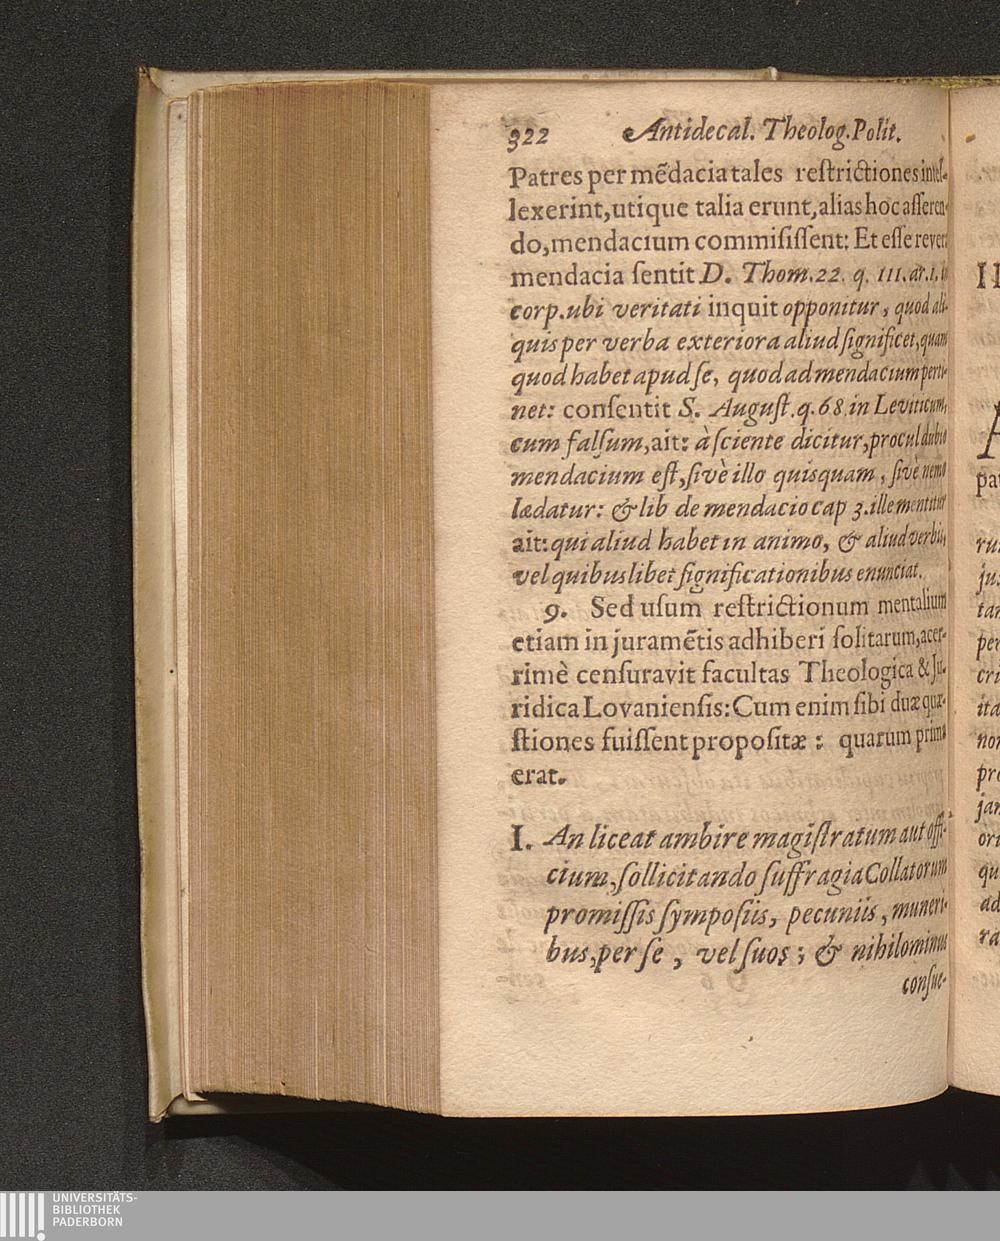 322 Antidecal. Theolog. Polit.
Patres per mẽdacia tales reſtrictiones intel-
lexerint, utique talia erunt, alias hoc aſſeren-
do, mendacium commiſiſſent: Et eſſe rever:
mendacia ſentit D. Thom. 22. q. 111. ar. 1. in
corp. ubi veritati inquit opponitur, quod ali-
quis per verba exteriora aliud ſignificet, quam
quod habet apud ſe, quod ad mendacium perti-
net: conſentit S. Auguſt. q. 68 in Leviticum,
cum falſum, ait: à ſciente dicitur, procul dubio
mendacium eſt, ſivè illo quisquam, ſivè nemo
lædatur: & lib de mendacio cap 3. ille mentitur
ait: qui aliud habet in animo, & aliud verbis,
vel quibuslibet ſignificationibus enunciat.
9. Sed uſum reſtrictionum mentalium
etiam in juramẽtis adhiberi ſolitarum, acer-
rimè cenſuravit facultas Theologica & Ju-
ridica Lovanienſis: Cum enim ſibi duæ quæ-
ſtiones fuiſſent propoſitæ: quarum prima
erat.
I. An liceat ambire magiſtratum aut offi-
cium, ſollicitando ſuffragia Collatorum
promiſſis ſympoſiis, pecuniis, muneri-
bus, per ſe, vel ſuos; & nihilominus
conſue-
II
pa
ru
ju
ta
per
cri
ita
no
pr
ja
ori
qu
ad
ra
UNIVERSITÄTS-
BIBLIOTHEK
PADERBORN